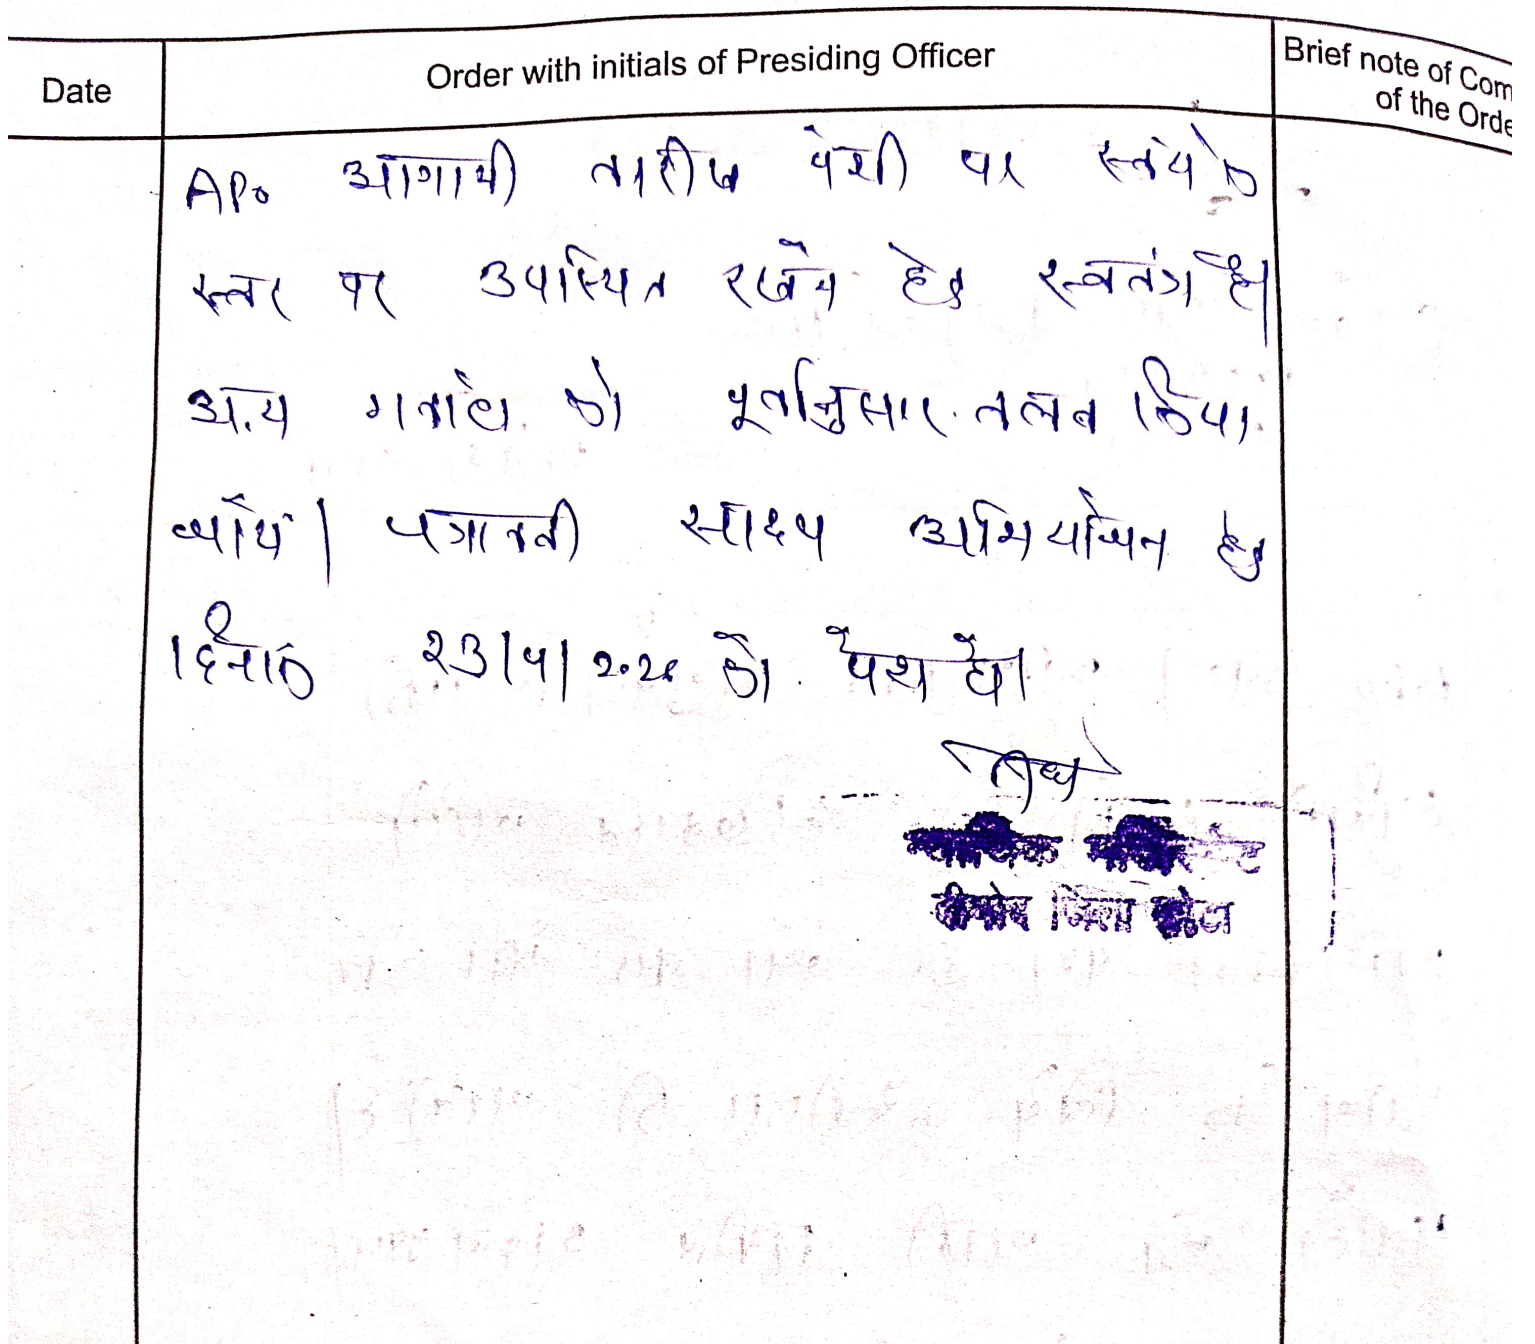 Date
Order with initials of Presiding Officer
Brief note of Com
of the Orde
APO आगामी तारीख पेशी पर स्वंय के
स्तर पर उपस्थित रखेन हेतु स्वतंत्र है।
अन्य गवाह को पूर्वानुसार तलब किया
जाये। पत्रावली साक्ष्य अभियोजन हेतु
दिनांक को पेश हो।
जिला